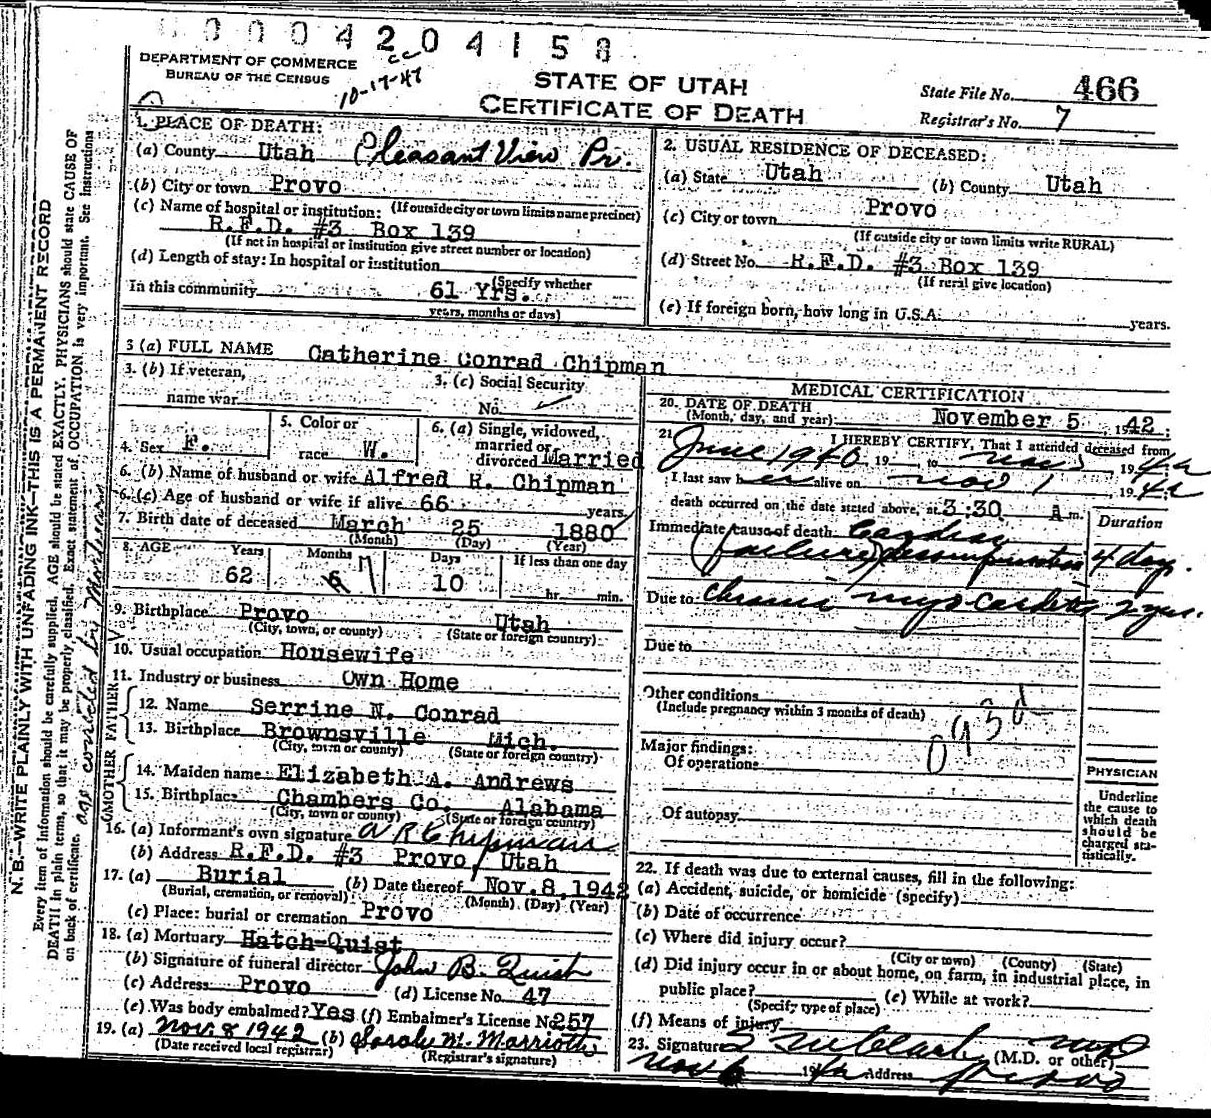 0 0 0 0 4 2 0 4 1 5 8
DEPARTMENT OF COMMERCE
BUREAU OF THE CENSUS
cc
10-17-47
STATE OF UTAH
CERTIFICATE OF DEATH
State File No. 466
Registrar's No. 7
1. PLACE OF DEATH:
(a) County Utah Pleasant View Pr.
(b) City or town Provo
(If outside city or town limits name precinct)
(c) Name of hospital or institution:
R.F.D. #3 Box 139
(If not in hospital or institution give street number or location)
(d) Length of stay: In hospital or institution
(Specify whether
In this community 61 Yrs.
years, months or days)
2. USUAL RESIDENCE OF DECEASED:
(a) State Utah (b) County Utah
(c) City or town Provo
(If outside city or town limits write RURAL)
(d) Street No. R.F.D. #3 Box 139
(If rural give location)
(e) If foreign born, how long in U.S.A. years.
3 (a) FULL NAME Catherine Conrad Chipman
3. (b) If veteran,
name war
3. (c) Social Security
No.
4. Sex F.
5. Color or
race W.
6. (a) Single, widowed,
married or
divorced Married
6. (b) Name of husband or wife Alfred R. Chipman
6. (c) Age of husband or wife if alive 66 years.
7. Birth date of deceased March 25 1880
(Month) (Day) (Year)
8. AGE Years Months Days If less than one day
62 6 7 10 hr. min.
9. Birthplace Provo Utah
(City, town, or county) (State or foreign country)
10. Usual occupation Housewife
11. Industry or business Own Home
FATHER
12. Name Serrine N. Conrad
13. Birthplace Brownsville Mich.
(City, town or county) (State or foreign country)
MOTHER
14. Maiden name Elizabeth A. Andrews
15. Birthplace Chambers Co. Alabama
(City, town or county) (State or foreign country)
16. (a) Informant's own signature A R Chipman
(b) Address R.F.D. #3 Provo, Utah
17. (a) Burial (b) Date thereof Nov. 8, 1942
(Burial, cremation, or removal) (Month) (Day) (Year)
(c) Place: burial or cremation Provo
18. (a) Mortuary Hatch-Quist
(b) Signature of funeral director John B. Quist
(c) Address Provo (d) License No. 47
(e) Was body embalmed? Yes (f) Embalmer's License No. 257
19. (a) Nov. 8 1942 (b) Sarah M. Marriott
(Date received local registrar) (Registrar's signature)
MEDICAL CERTIFICATION
20. DATE OF DEATH
(Month, day, and year): November 5, 1942
21. I HEREBY CERTIFY, That I attended deceased from
June 1940 19 , to Nov 5 1942
I last saw her alive on Nov 1, 1942
death occurred on the date stated above, at 3:30 A m. Duration
Immediate cause of death Cardiac
(failure) decompensation 4 days.
Due to Chronic myocarditis 2 yrs.
Due to
Other conditions
(Include pregnancy within 3 months of death)
093d
Major findings:
Of operations
Of autopsy
PHYSICIAN
Underline
the cause to
which death
should be
charged sta-
tistically.
22. If death was due to external causes, fill in the following:
(a) Accident, suicide, or homicide (specify)
(b) Date of occurrence
(c) Where did injury occur?
(City or town) (County) (State)
(d) Did injury occur in or about home, on farm, in industrial place, in
public place? (e) While at work?
(Specify type of place)
(f) Means of injury
23. Signature Clark MD
(M.D. or other)
Nov 6 1942 Address Provo
N. B.—WRITE PLAINLY WITH UNFADING INK—THIS IS A PERMANENT RECORD
Every item of information should be carefully supplied. AGE should be stated EXACTLY. PHYSICIANS should state CAUSE OF
DEATH in plain terms, so that it may be properly classified. Exact statement of OCCUPATION is very important. See instructions
on back of certificate.
age corrected by